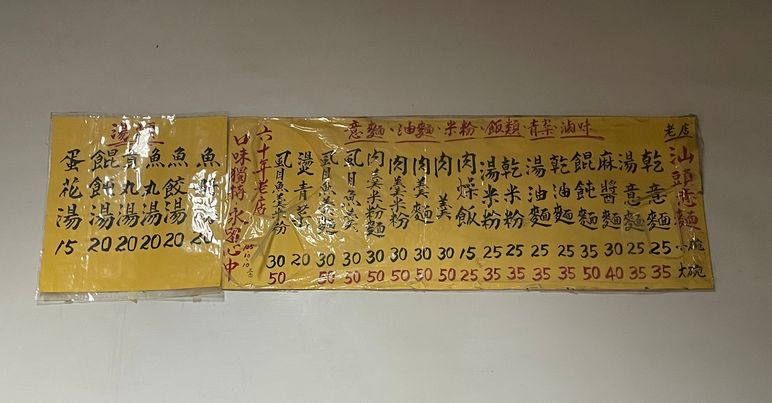 老店
汕頭意麵
小碗
大碗
意麵·油麵·米粉·飯類·青菜·滷味
乾意麵 25 35
湯意麵 25 35
麻醬麵 30 40
餛飩麵 35 50
乾油麵 25 35
湯油麵 25 35
乾米粉 25 35
湯米粉 25 35
肉燥飯 15 25
肉羹 30 50
肉羹麵 30 50
肉羹米粉 30 50
肉羹米粉麵 30 50
虱目魚羹 30 50
虱目魚羹麵 50
燙青菜 20
虱目魚羹米粉 30 50
六十年老店
口味獨特 永留心中
湯
魚 20
魚餃湯 20
魚丸湯 20
貢丸湯 20
餛飩湯 20
蛋花湯 15